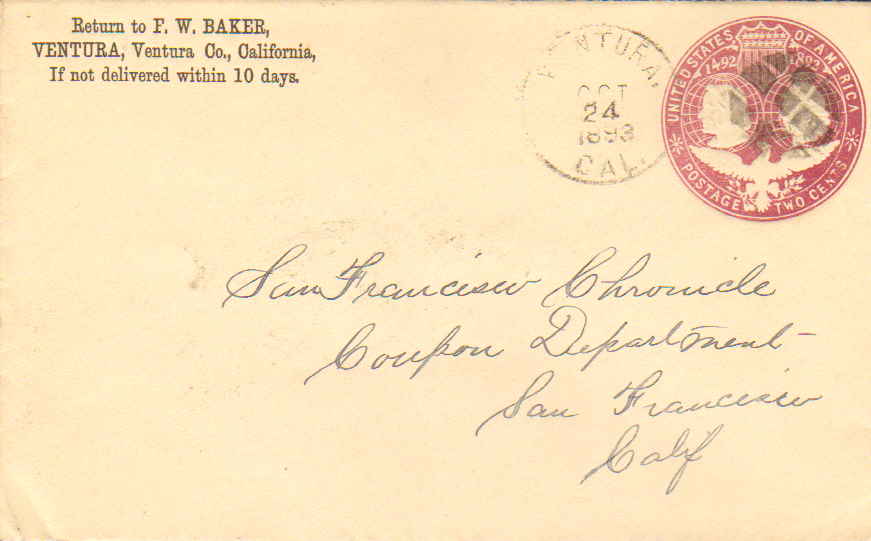 Return to F. W. BAKER,
VENTURA, Ventura Co., California,
If not delivered within 10 days.
VENTURA,
OCT
24
1893
CAL.
UNITED STATES OF AMERICA
1492 1892
POSTAGE TWO CENTS
San Francisco Chronicle
Coupon Department
San Francisco
Calif